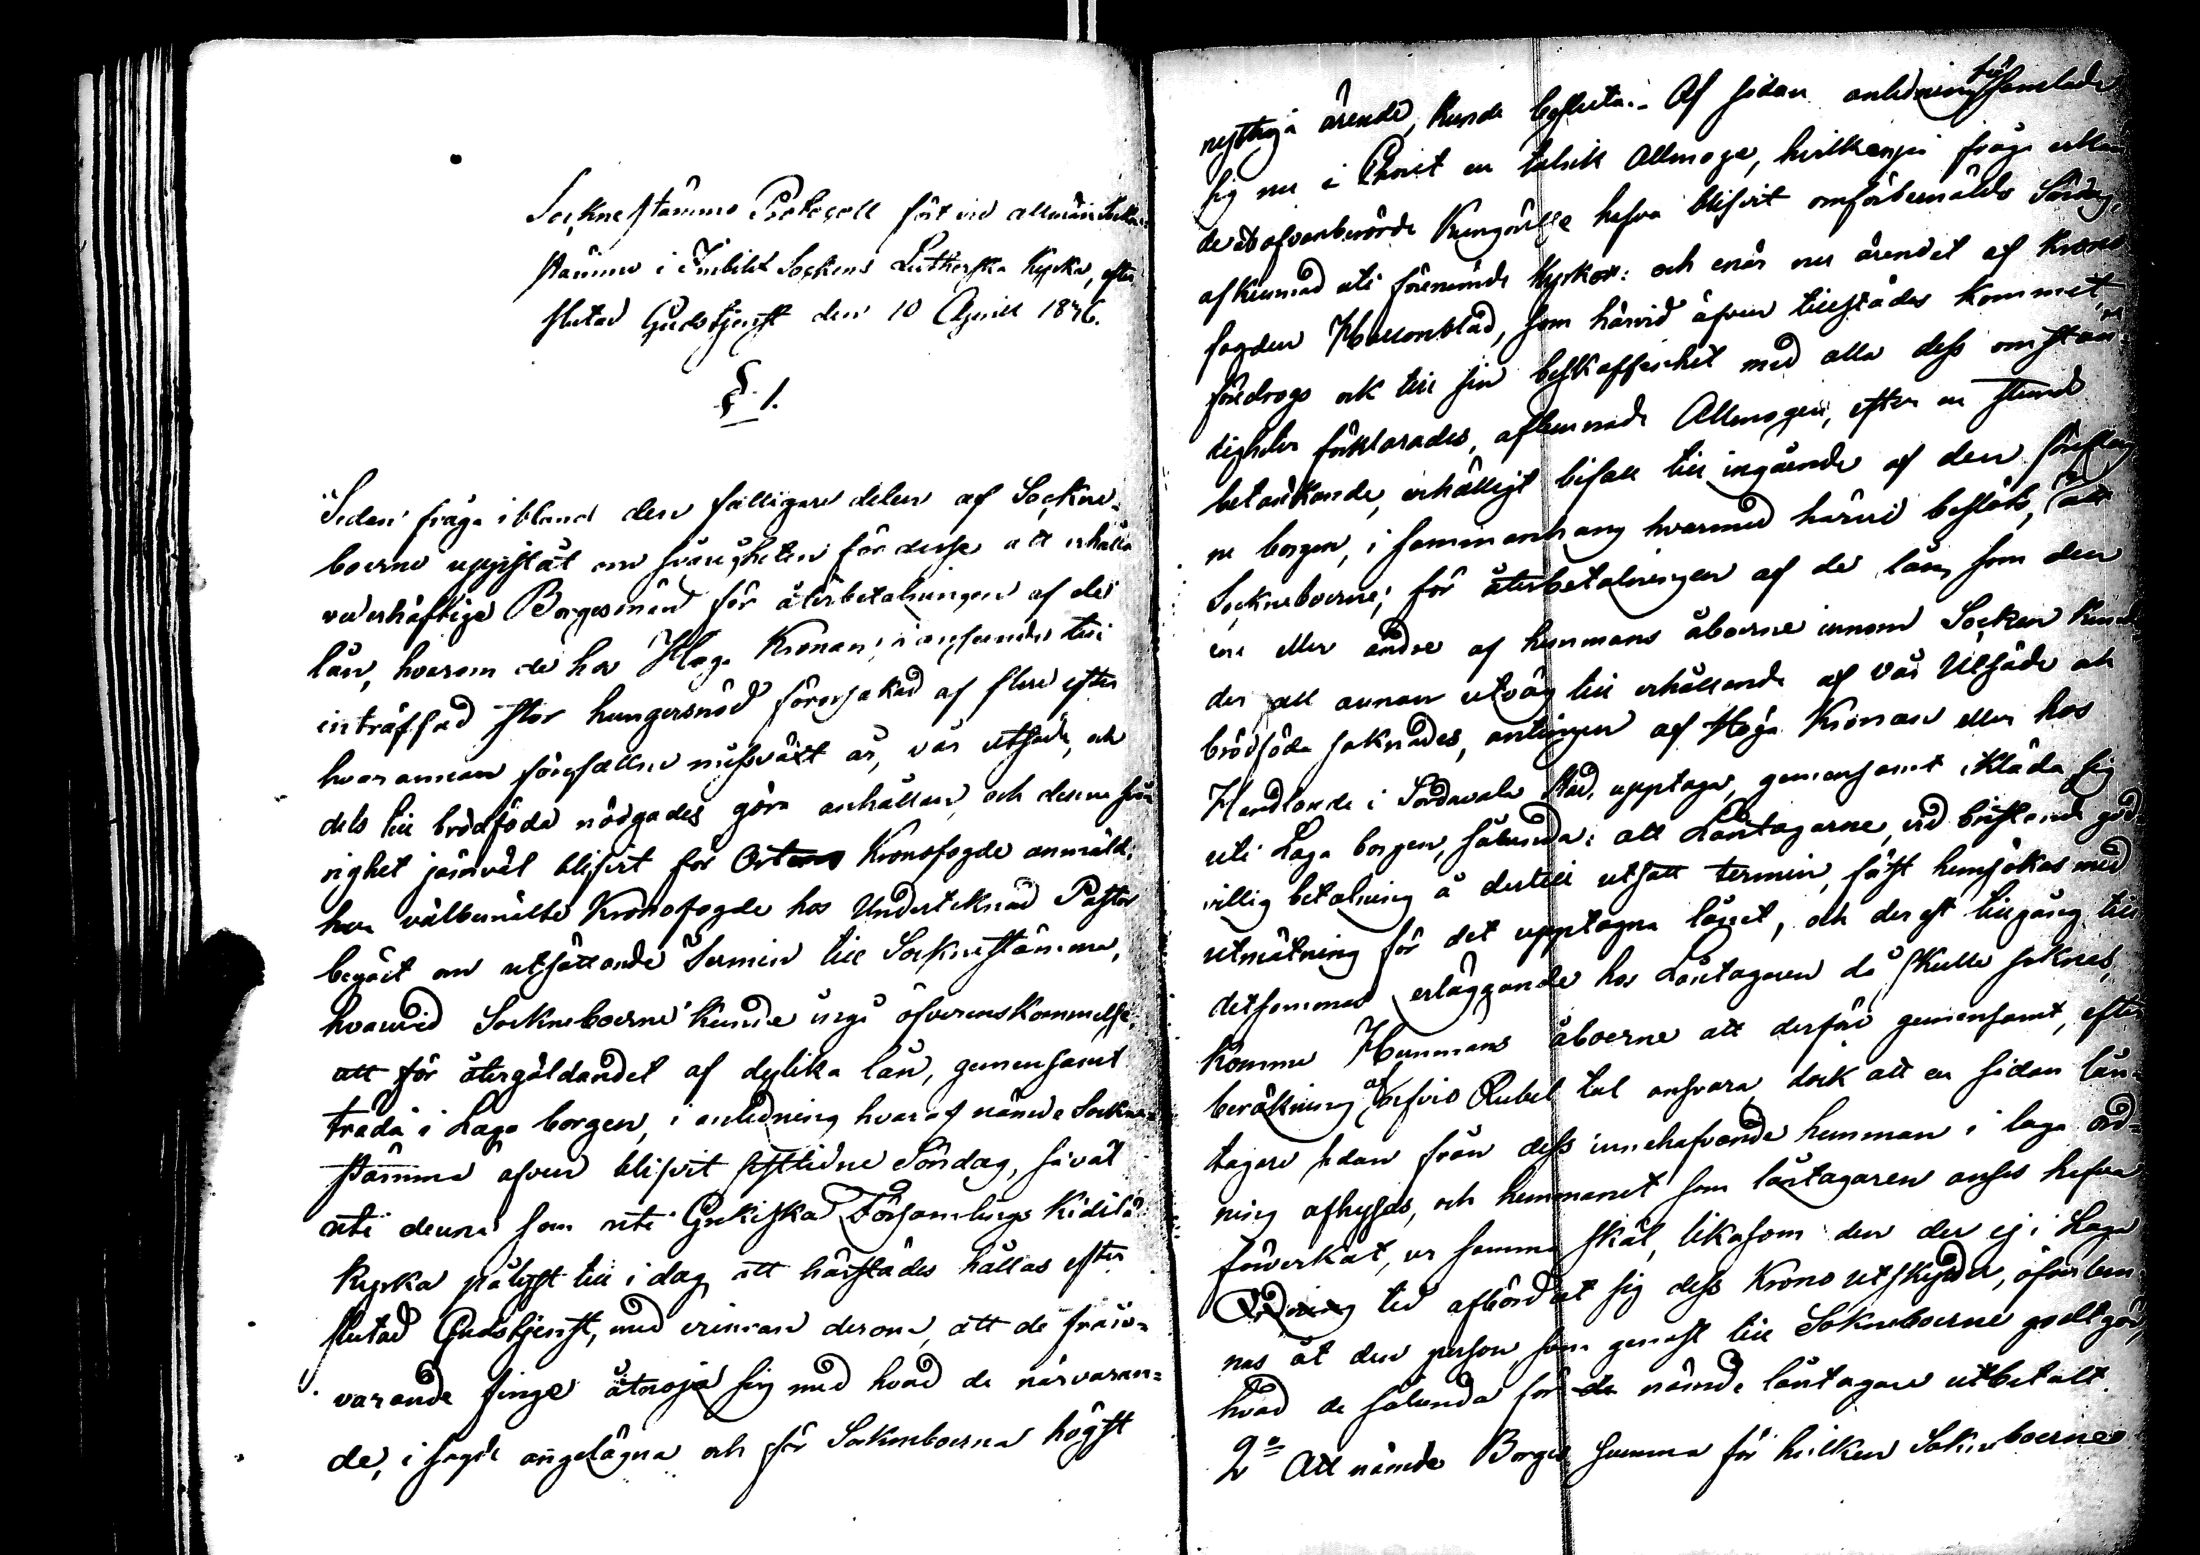 Sockne stämmo Protocoll fört vid allmän Sockne-
stämma i Imbilax Sockens Lutherska kyrka, efter
slutad Gudstjenst den 10 April 1836.
§ 1.
Sedan fråga ibland den fattigare delen af Sockne-
boerne uppstått om svårigheten för desse att erhålla
vederhäftige Borgesmän för återbetalningen af de
lån, hvarom de hos Höga Kronan, i anseende till
inträffad stor hungersnöd förorsakad af flere efter
hvarannan förefallne missväxt år, vår utsäde, och
dels till brödföda nödgades göra anhållan, och denne svå-
righet jämväl blifvit för Ortens Kronofogde anmäld,
har välbemälte Kronofogde hos Undertecknad Pastor
begärt om utsättande Termin till Socknestämma,
hvarvid Sockneboerne kunde ingå öfverenskommelse,
att för återgäldandet af dylika lån, gemensamt
träda i Laga borgen, i anledning hvaraf nämde Sockne-
stämma äfven blifvit sistledne Söndag, såväl
uti denna som uti Grekiska Församlings Kidilä
kyrka pålyst till i dag att härstädes hållas efter
slutad Gudstjenst, med erinran derom, att de frånva-
varande finge åtnöja sig med hvad de närvaran-
de, i sagde angelägna och för Sockneboerna högst
nyttiga ärende, kunde besluta. Af sådan anledning församlade
sig nu i Choret en talrik Allmoge, hvilken på fråga erkän-
de at ofvanberörde Kungörelse hafva blifvit omförbemälde Söndag,
afkunnad uti förenämde kyrkor: och enär nu ärendet af Krono
fogden Hallonblad, som härvid äfven tillstädes kommet,
föredrogs och till sin beskaffenhet med alla dess omstän-
digheter förklarades, aflemnade Allmogen, efter en stund
betänkande, enhälligt bifall till ingående af den föreslag-
ne borgen, i sammanhang hvarmed härvid beslöts, att
Sockneboerne, för återbetalningen af de lån, som den
ene eller andre af hemmans åboerne innom Socken kun-
der all annan utväg till erhållande af vår Utsäde och
brödföda saknades, antingen af Höga Kronan eller hos
Handlande i Sordavala Stad, upptaga, gemensamt ikläda sig
uti Laga borgen, sålunda: att Låntagarne, vid bristande god-
villig betalning å dertill utsatt termin, först hemsökas med
utmätning för det upptagna lånet, och derest tillgång till
detsammas erläggande hos Låntagaren då skulle saknas,
komma Hemmans åboerne att derföre gemensamt, efter
beräkning af hvars Rubel tal ansvara, dock att en sådan lån-
tagare sedan från dess innehafvande hemman i laga ord-
ning afhyses, och hemmanet som låntagaren anses hafva
förverkat, er samma skäl, likasom den der ej i Laga
tid afbördat sig dess Krono utskylder, öfverlem-
nas åt den person, som genast till Sockneboerne godtgör,
hvad de sålunda för nämde låntagare utbetalt.
2o Att nämde Borges summa för hvilken Sockneboerne